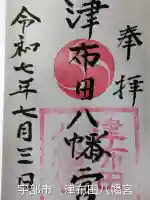 奉拝
津布田八幡宮
令和七年七月三日
津布田
宇部市　津布田八幡宮